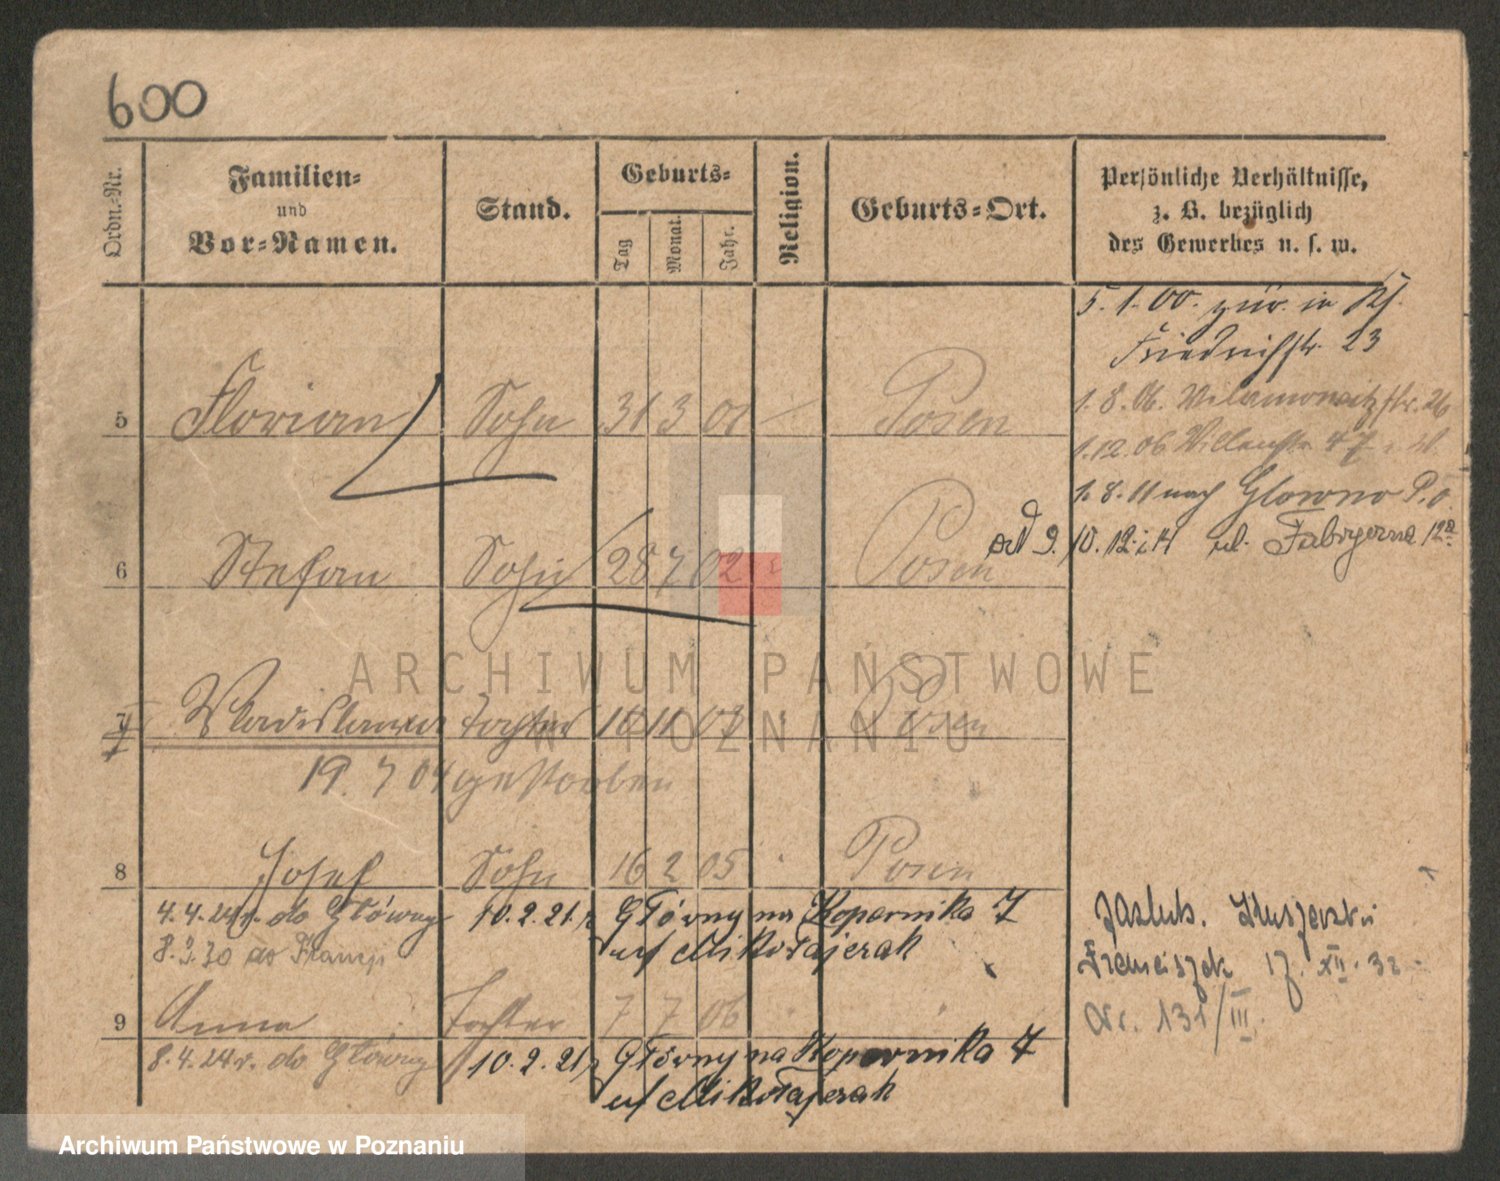 600
Ordn.-Nr.
Familien-
und
Vor-Namen.
Stand.
Geburts-
Tag
Monat.
Jahr.
Religion.
Geburts-Ort.
Persönliche Verhältnisse,
z. B. bezüglich
des Gewerbes u. s. w.
5. 1. 00. zur. in
Friedrichstr. 23
5 Florian Sohn 31 3 01 Posen
1. 8. 06. Wilamowitzstr. 26
1. 12. 06 47
1. 8. 11 nach Glowno P.O.
od 9. 10. 12 ul. Fabryczna 12a
6 Stefan Sohn 28 7 02 Posen
7 Wladislawa Tochter 16 11 03 Posen
19. 7 04 gestorben
8 Josef Sohn 16 2 05 Posen
4.4.24r. do Główny 10.2.21r Główny na Kopernika 7
8.9.30 do Francji u/ Mikołajczak
zaślub.
Franciszek 17. XII. 32
Nr. 131/III.
9 Anna Tochter 7 7 06
8.4.24r. do Główny 10.2.21r Główny na Kopernika 7
u/ Mikołajczak
ARCHIWUM PAŃSTWOWE
W POZNANIU
Archiwum Państwowe w Poznaniu